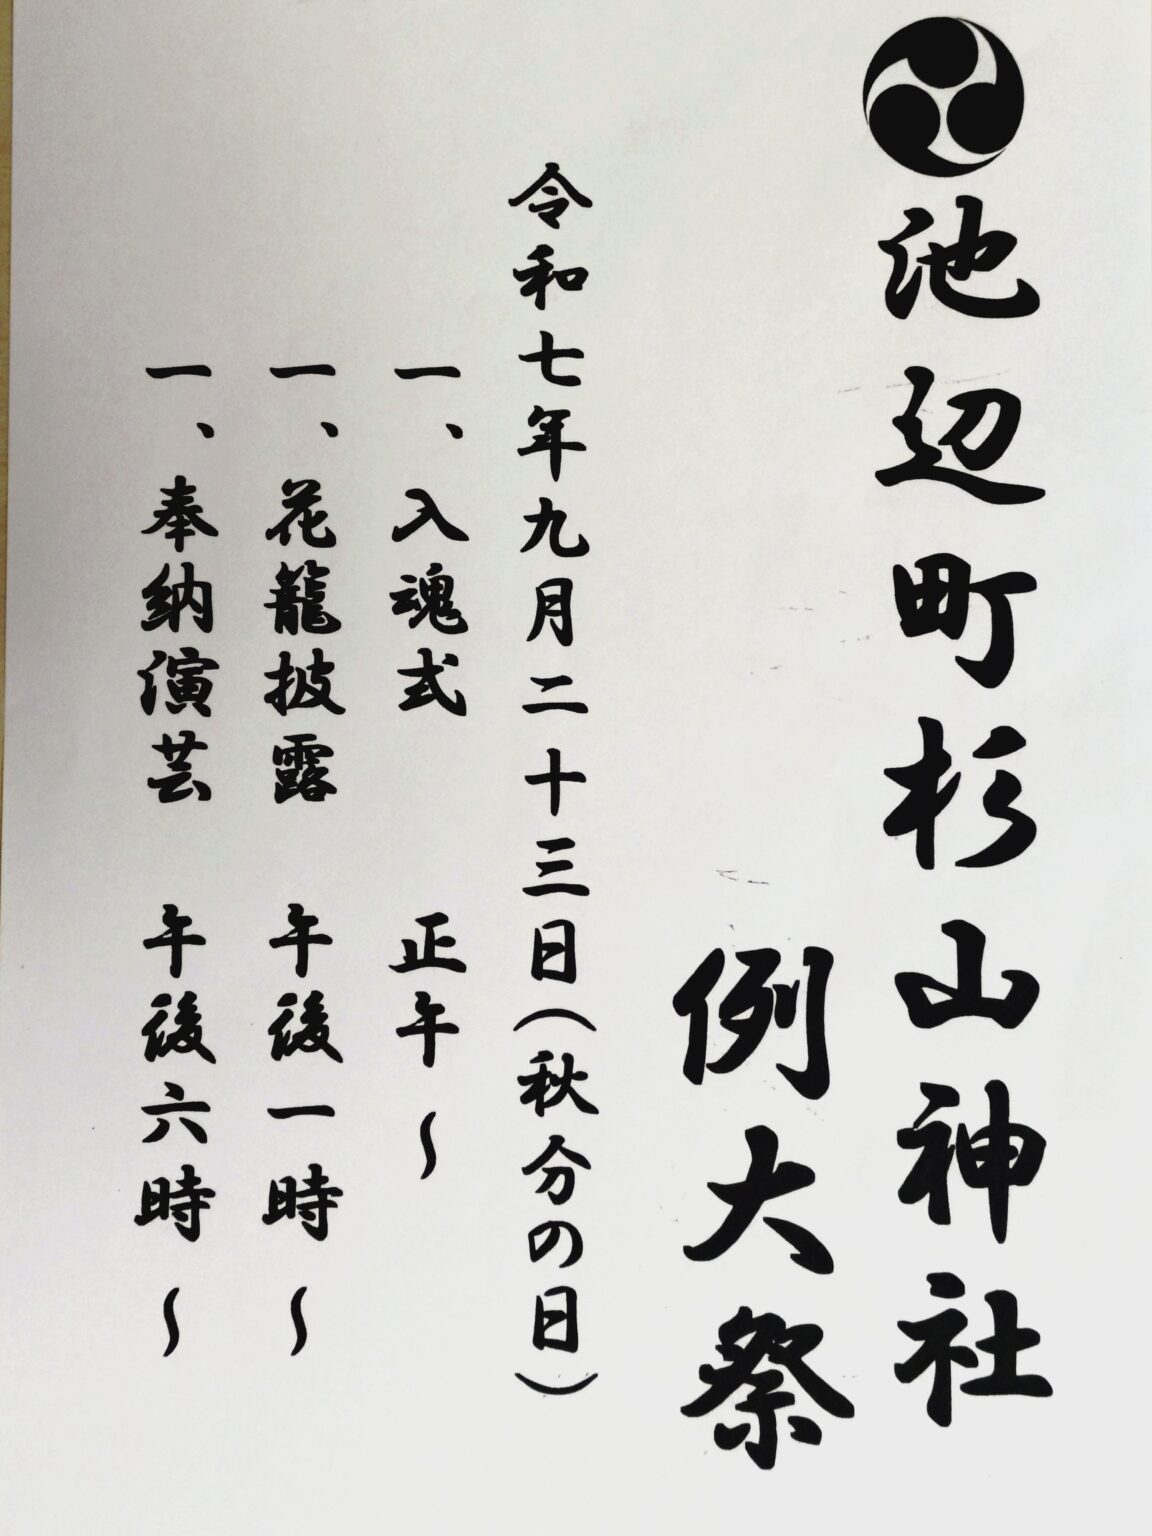 池辺町杉山神社
例大祭
令和七年九月二十三日(秋分の日)
一、入魂式 正午〜
一、花籠披露 午後一時〜
一、奉納演芸 午後六時〜